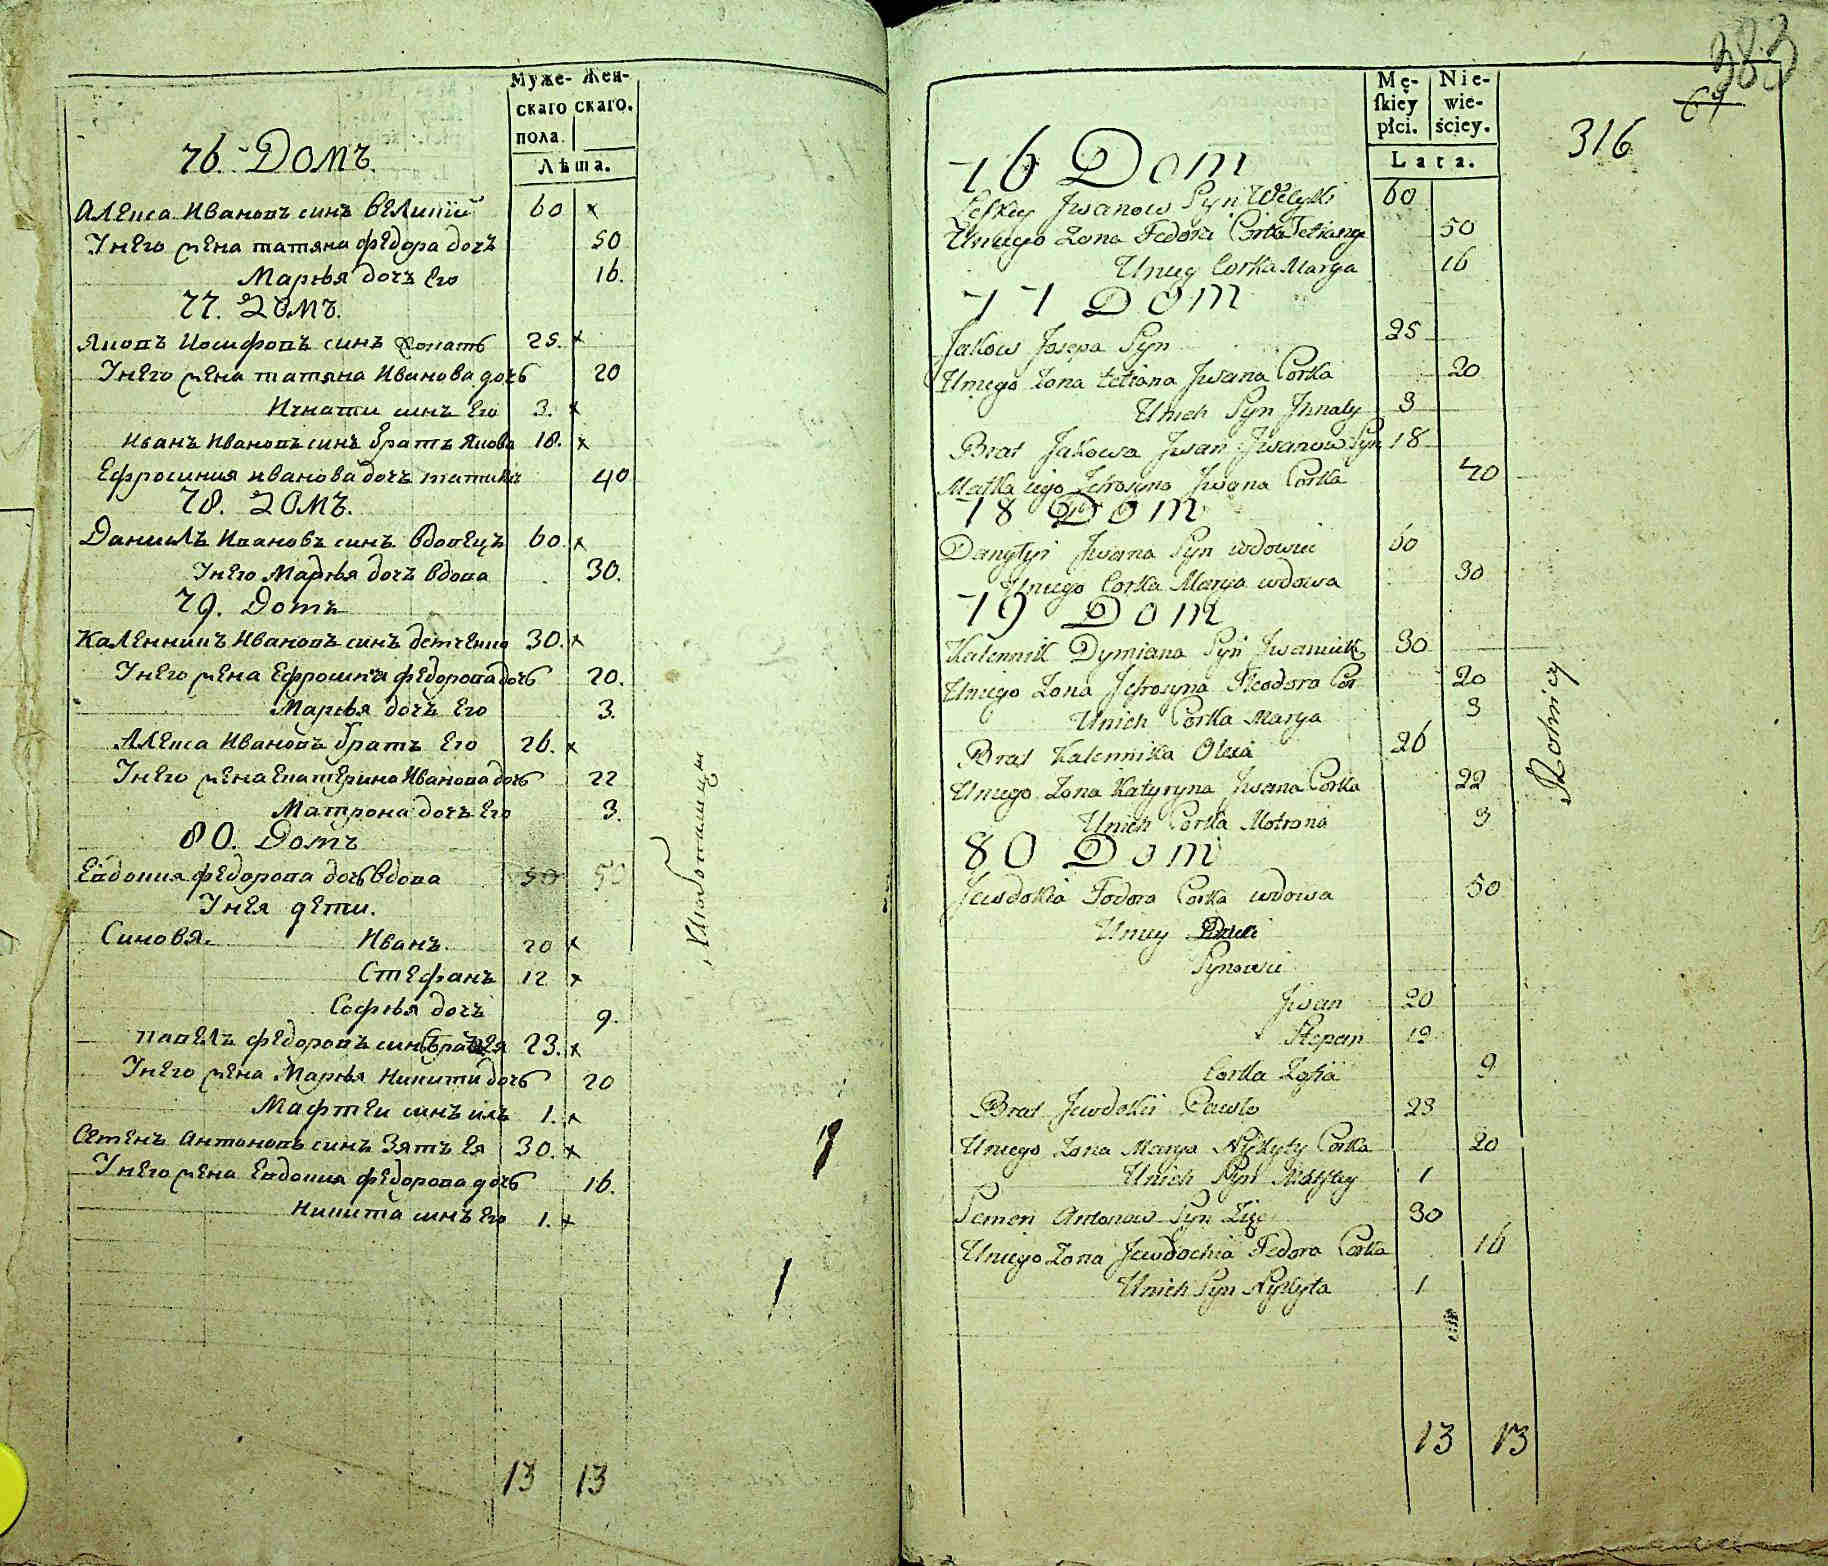 Муже- Жен-
скаго скаго.
пола.
Лѣта.
76. Домъ.
Алекса Ивановъ синъ Великий 60 x
Унего жена татяна федора дочъ 50
Марья дочъ Его 16.
77. Домъ.
Яковъ Иосифовъ синъ 25. x
Унего жена татяна Иванова дочь 20
Игнати синъ Его 3. x
Иванъ Ивановъ синъ братъ Якова 18. x
Ефросиния иванова дочъ 40
78. Домъ.
Даниилъ Ивановъ синъ вдовецъ 60. x
Унего Марья дочъ вдова 30.
79. Домъ
Каленникъ Ивановъ синъ 30. x
Унего жена Ефросиния федорова дочь 20.
Марья дочъ Его 3.
Алекса Ивановъ братъ Его 26. x
Унего жена Екатерина Иванова дочь 22
Матрона дочъ Его 3.
80. Домъ
Евдокия федорова дочь вдова 50 50
Унея дети.
Синовя. Иванъ. 20 x
Стефанъ 12 x
Софья дочъ 9.
павелъ федоровъ синъ братъ Ея 23. x
Унего жена Марья Никити дочь 20
Мафтеи синъ ихъ 1. x
Семенъ Антоновъ синъ Зять Ея 30. x
Унего жена Евдокия федорова дочь 16.
Никита синъ Его 1. x
13 13
Хлебопашцы
1
383
69
316
Mę- Nie-
skiey wie-
płci. ściey.
Lata.
76 Dom
Leskiy Jwanow Syn Welyki 60
Uniego Zona Fedora Corka Tetiana 50
Uniey Corka Marya 16
77 Dom
Jakow Josepa Syn 25
Uniego Zona tetiana Jwana Corka 20
Unich Syn Jhnaty 3
Brat Jakowa Jwan Jwanow Syn 18
Matka iego Jefrosyna Jwana Corka 40
78 Dom
Danyłyi Jwana Syn wdowiec 60
Uniego Corka Marya wdowa 30
79 Dom
Kalennik Dymiana Syn Jwaniuk 30
Uniego Zona Jefrosyna Theodora Cor 20
Unich Corka Marya 3
Brat Kalennika Olexa 26
Uniego Zona Katyryna Jwana Corka 22
Unich Corka Motrona 3
80 Dom
Jewdokia Fodora Corka wdowa 50
Uniey Dzieci
Synowie
Jwan 20
Stepan 12
Corka Zofia 9
Brat Jewdokii Pawło 23
Uniego Zona Marya Nykyty Corka 20
Unich Syn Matfiey 1
Semen Antonow Syn Zięć 30
Uniego Zona Jewdochia Fedora Corka 16
Unich Syn Nykyta 1
13 13
Rolnicy